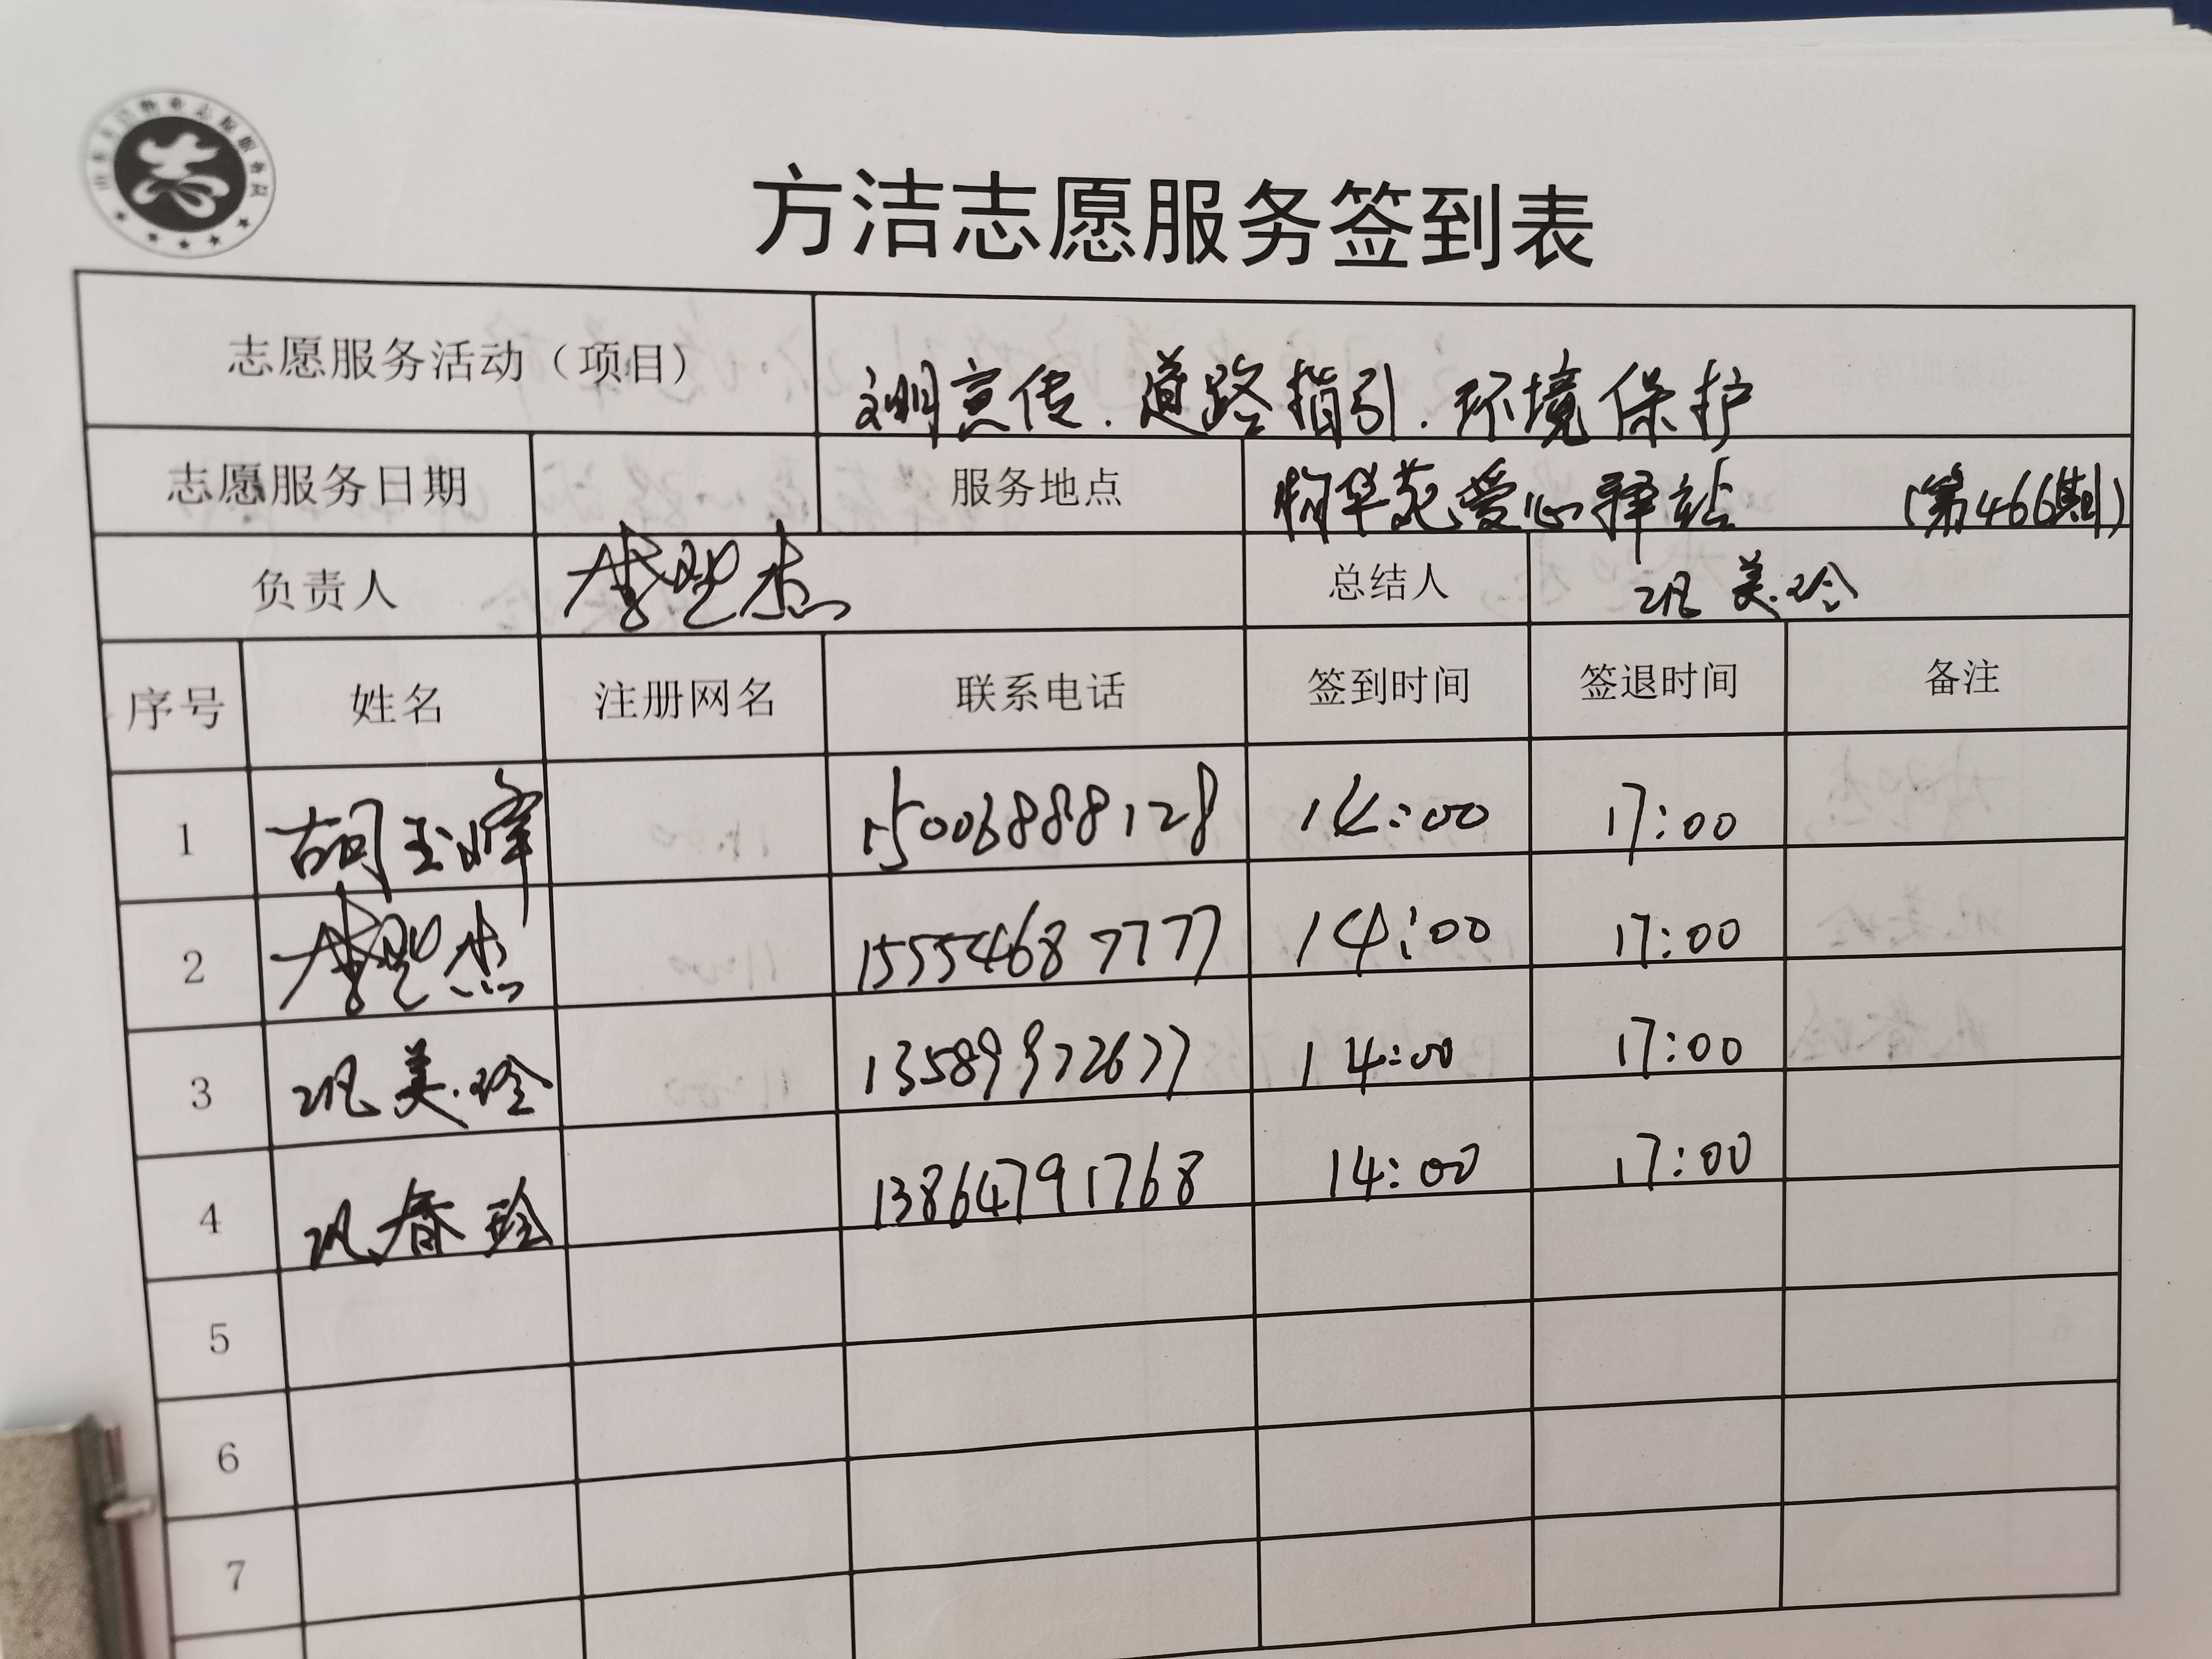 方洁志愿服务签到表
志愿服务活动（项目） 文明宣传.道路指引.环境保护
志愿服务日期 服务地点 物华苑爱心驿站 (第466期)
负责人 总结人 巩美玲
序号 姓名 注册网名 联系电话 签到时间 签退时间 备注
1 胡玉峰 15006888128 14:00 17:00
2 15554687777 14:00 17:00
3 巩美玲 13589972677 14:00 17:00
4 巩春玲 13864791768 14:00 17:00
5
6
7